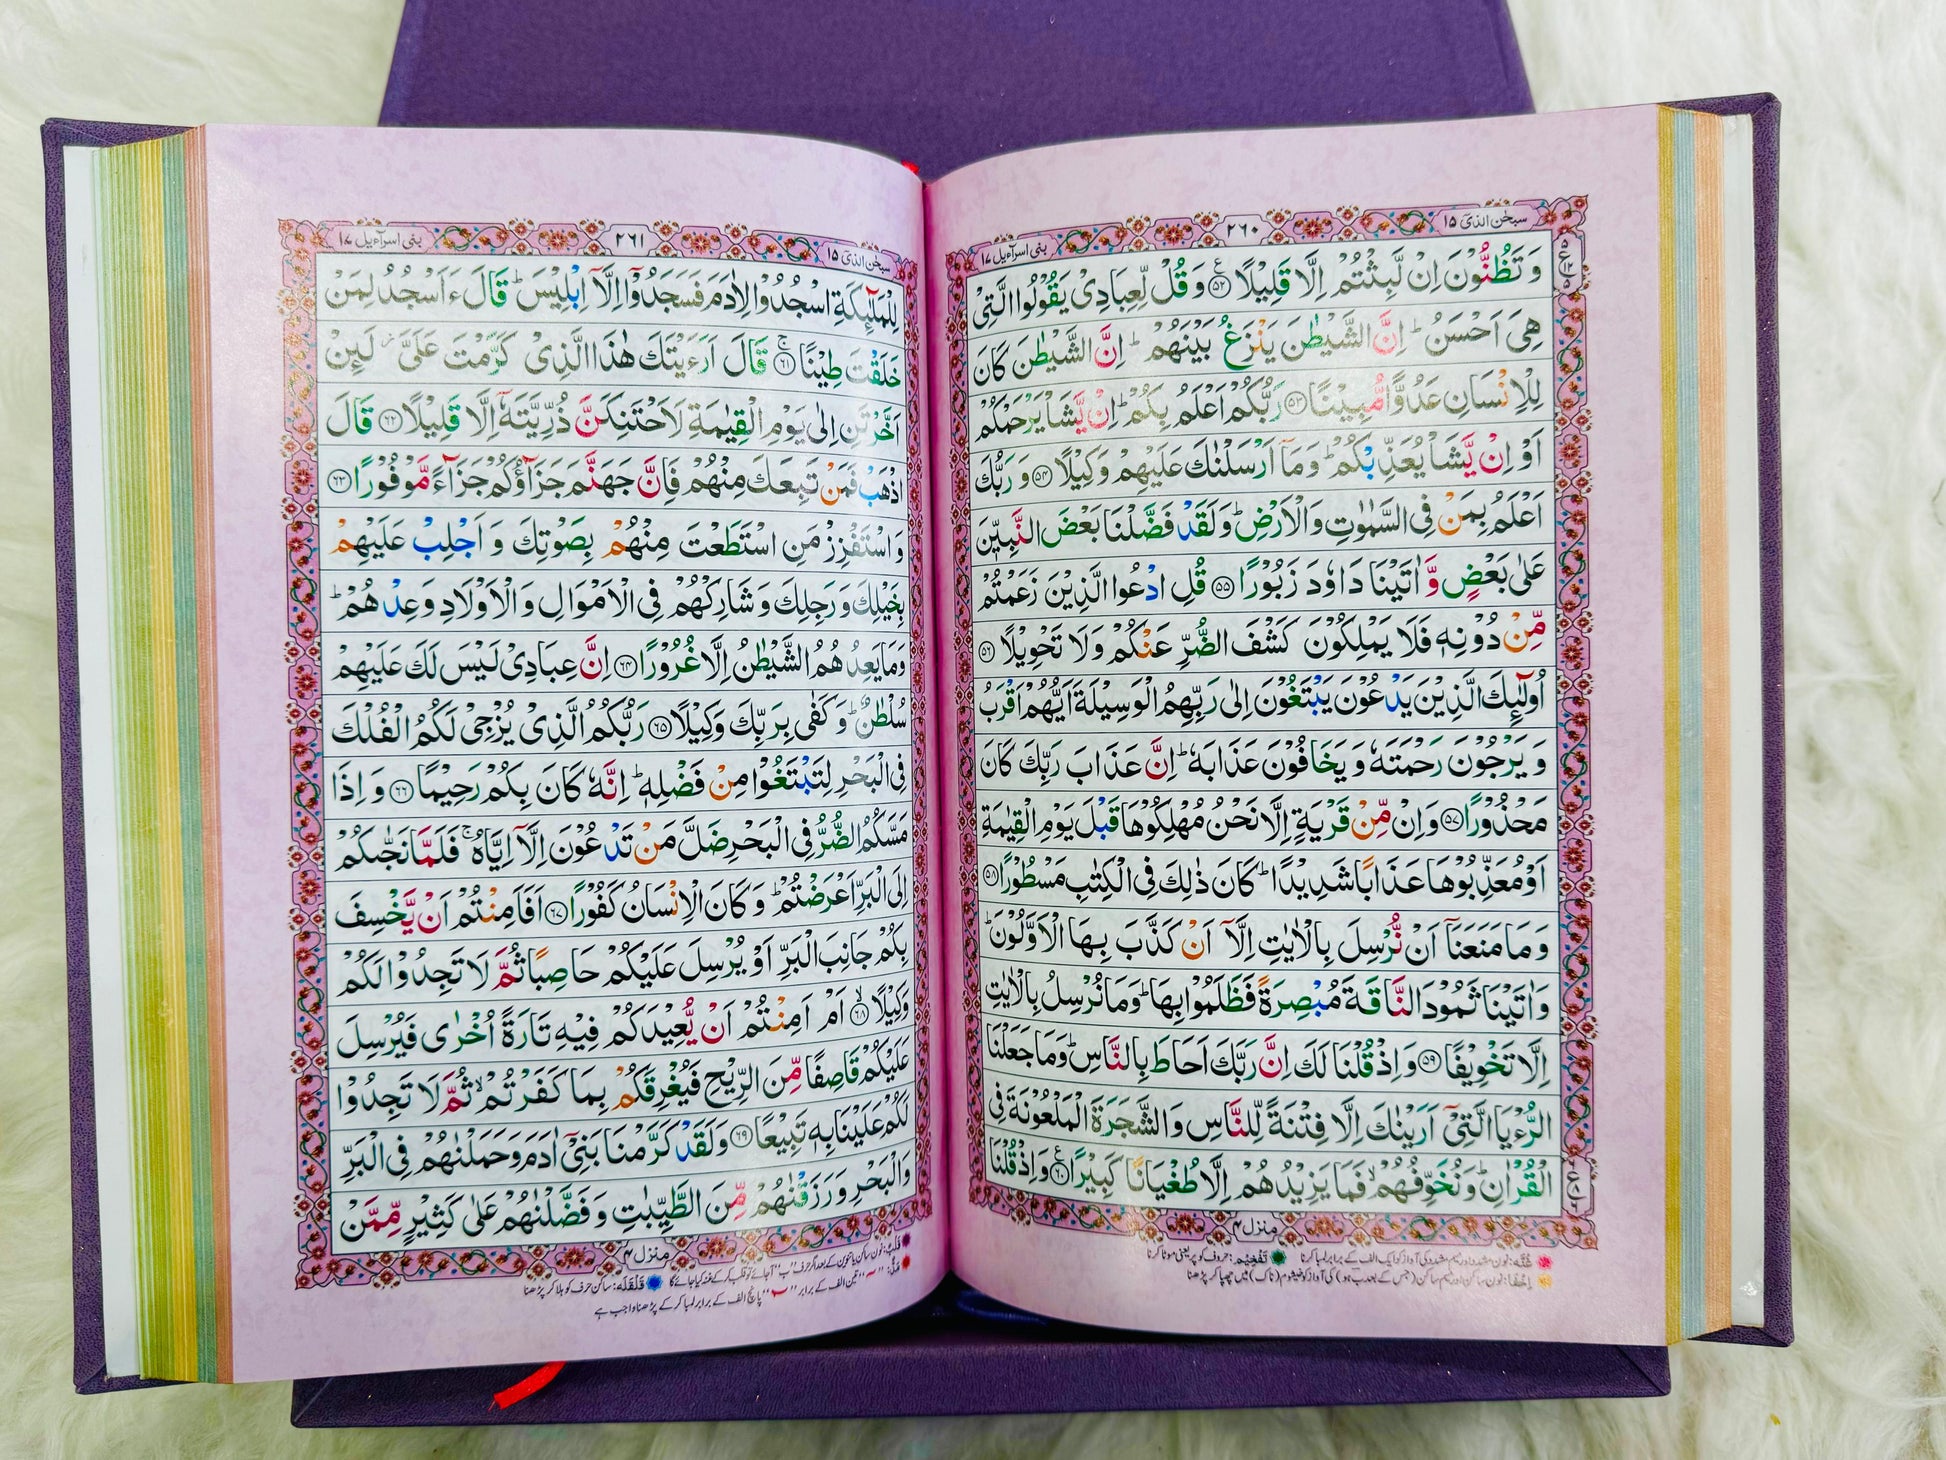 سبحٰن الذیٓ ١٥
٢٦٠
بنیٓ اسرآءیل ١٧
وَتَظُنُّوْنَ اِنْ لَّبِثْتُمْ اِلَّا قَلِیْلًا ﴿٥٢﴾ وَقُلْ لِّعِبَادِیْ یَقُوْلُوا الَّتِیْ
هِیَ اَحْسَنُ ؕ اِنَّ الشَّیْطٰنَ یَنْزَغُ بَیْنَهُمْ ؕ اِنَّ الشَّیْطٰنَ كَانَ
لِلْاِنْسَانِ عَدُوًّا مُّبِیْنًا ﴿٥٣﴾ رَبُّكُمْ اَعْلَمُ بِكُمْ ؕ اِنْ یَّشَاْ یَرْحَمْكُمْ
اَوْ اِنْ یَّشَاْ یُعَذِّبْكُمْ ؕ وَمَاۤ اَرْسَلْنٰكَ عَلَیْهِمْ وَكِیْلًا ﴿٥٤﴾ وَرَبُّكَ
اَعْلَمُ بِمَنْ فِی السَّمٰوٰتِ وَالْاَرْضِ ؕ وَلَقَدْ فَضَّلْنَا بَعْضَ النَّبِیّٖنَ
عَلٰی بَعْضٍ وَّاٰتَیْنَا دَاوٗدَ زَبُوْرًا ﴿٥٥﴾ قُلِ ادْعُوا الَّذِیْنَ زَعَمْتُمْ
مِّنْ دُوْنِهٖ فَلَا یَمْلِكُوْنَ كَشْفَ الضُّرِّ عَنْكُمْ وَلَا تَحْوِیْلًا ﴿٥٦﴾
اُولٰٓئِكَ الَّذِیْنَ یَدْعُوْنَ یَبْتَغُوْنَ اِلٰی رَبِّهِمُ الْوَسِیْلَةَ اَیُّهُمْ اَقْرَبُ
وَیَرْجُوْنَ رَحْمَتَهٗ وَیَخَافُوْنَ عَذَابَهٗ ؕ اِنَّ عَذَابَ رَبِّكَ كَانَ
مَحْذُوْرًا ﴿٥٧﴾ وَاِنْ مِّنْ قَرْیَةٍ اِلَّا نَحْنُ مُهْلِكُوْهَا قَبْلَ یَوْمِ الْقِیٰمَةِ
اَوْ مُعَذِّبُوْهَا عَذَابًا شَدِیْدًا ؕ كَانَ ذٰلِكَ فِی الْكِتٰبِ مَسْطُوْرًا ﴿٥٨﴾
وَمَا مَنَعَنَاۤ اَنْ نُّرْسِلَ بِالْاٰیٰتِ اِلَّاۤ اَنْ كَذَّبَ بِهَا الْاَوَّلُوْنَ ؕ
وَاٰتَیْنَا ثَمُوْدَ النَّاقَةَ مُبْصِرَةً فَظَلَمُوْا بِهَا ؕ وَمَا نُرْسِلُ بِالْاٰیٰتِ
اِلَّا تَخْوِیْفًا ﴿٥٩﴾ وَاِذْ قُلْنَا لَكَ اِنَّ رَبَّكَ اَحَاطَ بِالنَّاسِ ؕ وَمَا جَعَلْنَا
الرُّءْیَا الَّتِیْۤ اَرَیْنٰكَ اِلَّا فِتْنَةً لِّلنَّاسِ وَالشَّجَرَةَ الْمَلْعُوْنَةَ فِی
الْقُرْاٰنِ ؕ وَنُخَوِّفُهُمْ ۙ فَمَا یَزِیْدُهُمْ اِلَّا طُغْیَانًا كَبِیْرًا ﴿٦٠﴾ وَاِذْ قُلْنَا
منزل ٤
غُنَّه: نون مشدد اور میم مشدد کی آواز کو ایک الف کے برابر لمبا کرنا تَفْخِیْم: حروف کو پُر یعنی موٹا کرنا
اِخفَا: نون ساکن اور میم ساکن (جس کے بعد ب ہو) کی آواز کو خیشوم (ناک) میں چھپا کر پڑھنا
سبحٰن الذیٓ ١٥
٢٦١
بنیٓ اسرآءیل ١٧
لِلْمَلٰٓئِكَةِ اسْجُدُوْا لِاٰدَمَ فَسَجَدُوْۤا اِلَّاۤ اِبْلِیْسَ ؕ قَالَ ءَاَسْجُدُ لِمَنْ
خَلَقْتَ طِیْنًا ﴿٦١﴾ قَالَ اَرَءَیْتَكَ هٰذَا الَّذِیْ كَرَّمْتَ عَلَیَّ ؗ لَىِٕنْ
اَخَّرْتَنِ اِلٰی یَوْمِ الْقِیٰمَةِ لَاَحْتَنِكَنَّ ذُرِّیَّتَهٗۤ اِلَّا قَلِیْلًا ﴿٦٢﴾ قَالَ
اذْهَبْ فَمَنْ تَبِعَكَ مِنْهُمْ فَاِنَّ جَهَنَّمَ جَزَآؤُكُمْ جَزَآءً مَّوْفُوْرًا ﴿٦٣﴾
وَاسْتَفْزِزْ مَنِ اسْتَطَعْتَ مِنْهُمْ بِصَوْتِكَ وَاَجْلِبْ عَلَیْهِمْ
بِخَیْلِكَ وَرَجِلِكَ وَشَارِكْهُمْ فِی الْاَمْوَالِ وَالْاَوْلَادِ وَعِدْهُمْ ؕ
وَمَا یَعِدُهُمُ الشَّیْطٰنُ اِلَّا غُرُوْرًا ﴿٦٤﴾ اِنَّ عِبَادِیْ لَیْسَ لَكَ عَلَیْهِمْ
سُلْطٰنٌ ؕ وَكَفٰی بِرَبِّكَ وَكِیْلًا ﴿٦٥﴾ رَبُّكُمُ الَّذِیْ یُزْجِیْ لَكُمُ الْفُلْكَ
فِی الْبَحْرِ لِتَبْتَغُوْا مِنْ فَضْلِهٖ ؕ اِنَّهٗ كَانَ بِكُمْ رَحِیْمًا ﴿٦٦﴾ وَاِذَا
مَسَّكُمُ الضُّرُّ فِی الْبَحْرِ ضَلَّ مَنْ تَدْعُوْنَ اِلَّاۤ اِیَّاهُ ۚ فَلَمَّا نَجّٰىكُمْ
اِلَی الْبَرِّ اَعْرَضْتُمْ ؕ وَكَانَ الْاِنْسَانُ كَفُوْرًا ﴿٦٧﴾ اَفَاَمِنْتُمْ اَنْ یَّخْسِفَ
بِكُمْ جَانِبَ الْبَرِّ اَوْ یُرْسِلَ عَلَیْكُمْ حَاصِبًا ثُمَّ لَا تَجِدُوْا لَكُمْ
وَكِیْلًا ۙ﴿٦٨﴾ اَمْ اَمِنْتُمْ اَنْ یُّعِیْدَكُمْ فِیْهِ تَارَةً اُخْرٰی فَیُرْسِلَ
عَلَیْكُمْ قَاصِفًا مِّنَ الرِّیْحِ فَیُغْرِقَكُمْ بِمَا كَفَرْتُمْ ۙ ثُمَّ لَا تَجِدُوْا
لَكُمْ عَلَیْنَا بِهٖ تَبِیْعًا ﴿٦٩﴾ وَلَقَدْ كَرَّمْنَا بَنِیْۤ اٰدَمَ وَحَمَلْنٰهُمْ فِی الْبَرِّ
وَالْبَحْرِ وَرَزَقْنٰهُمْ مِّنَ الطَّیِّبٰتِ وَفَضَّلْنٰهُمْ عَلٰی كَثِیْرٍ مِّمَّنْ
منزل ٤
قَلْب: نون ساکن یا تنوین کے بعد اگر حرف "ب" آجائے تو قلب کر کے غنہ کیا جائے گا
قَلْقَلَه: ساکن حرف کو ہلا کر پڑھنا
پانچ الف کے برابر لمبا کر کے پڑھنا واجب ہے